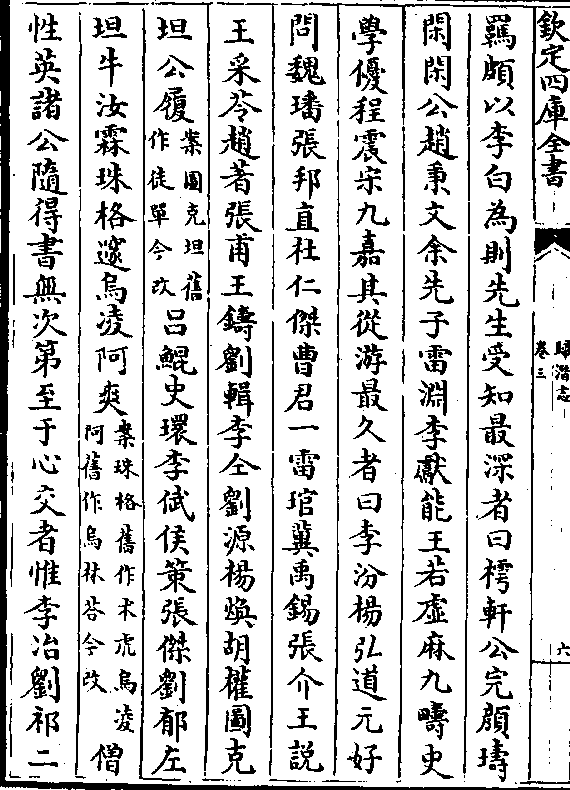 欽定四庫全書
歸潛志
卷三
六
羈頗以李白為則先生受知最深者曰樗軒公完顔璹
閑閑公趙秉文余先子雷淵李獻能王若虛麻九疇史
學優程震宋九嘉其從游最久者曰李汾楊弘道元好
問魏璠張邦直杜仁傑曹君一雷琯冀禹錫張介王說
王采苓趙著張甫王鑄劉輯李仝劉源楊煥胡權圖克
坦公履案圖克坦舊作徒單今改呂鯤史環李佩侯策張傑劉郁左
坦牛汝霖珠格邃烏凌阿爽案珠格舊作朮虎烏凌阿舊作烏林荅今改僧
性英諸公隨得書無次第至于心交者惟李冶劉祁二